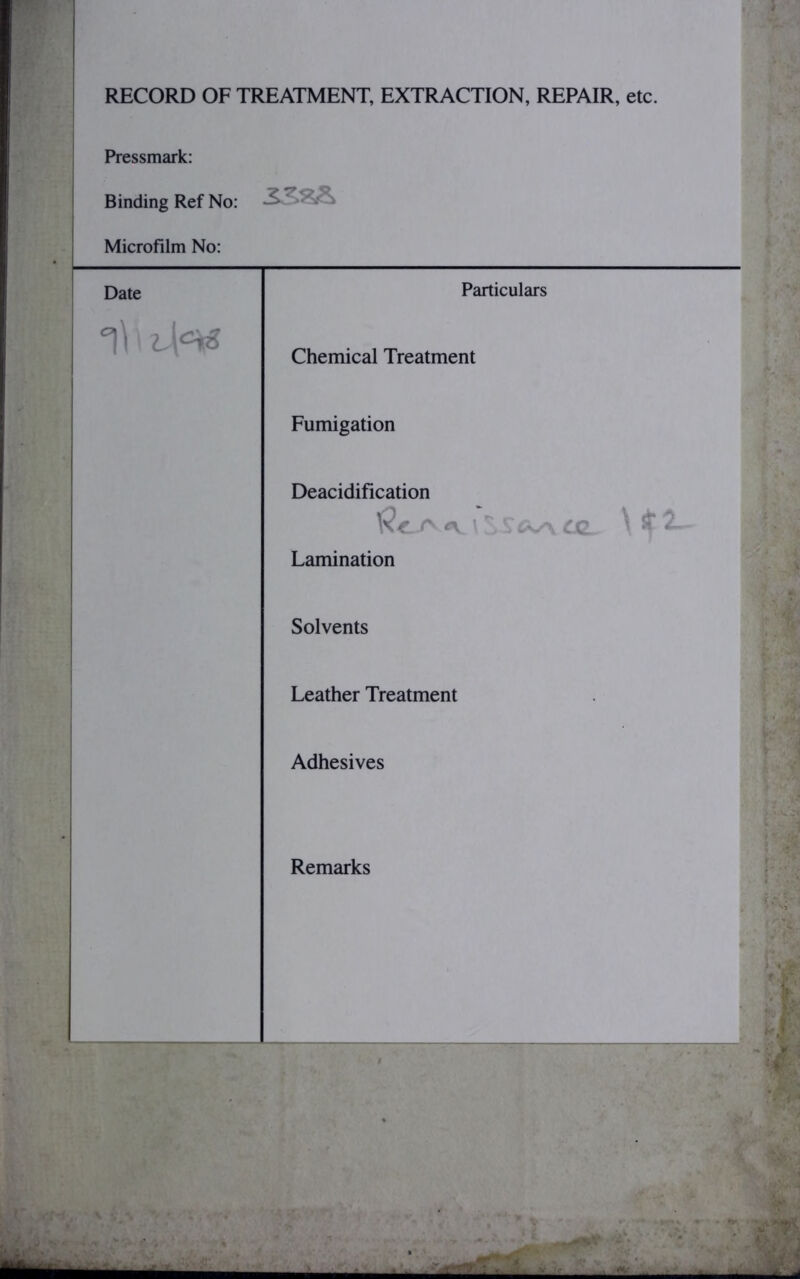 RECORD OF TREATMENT, EXTRACTION, REPAIR, etc.
Pressmark:
Binding Ref No: 3388
Microfilm No:
Date Particulars
9/12/98
Chemical Treatment
Fumigation
Deacidification
Renaissance 1 & 2
Lamination
Solvents
Leather Treatment
Adhesives
Remarks